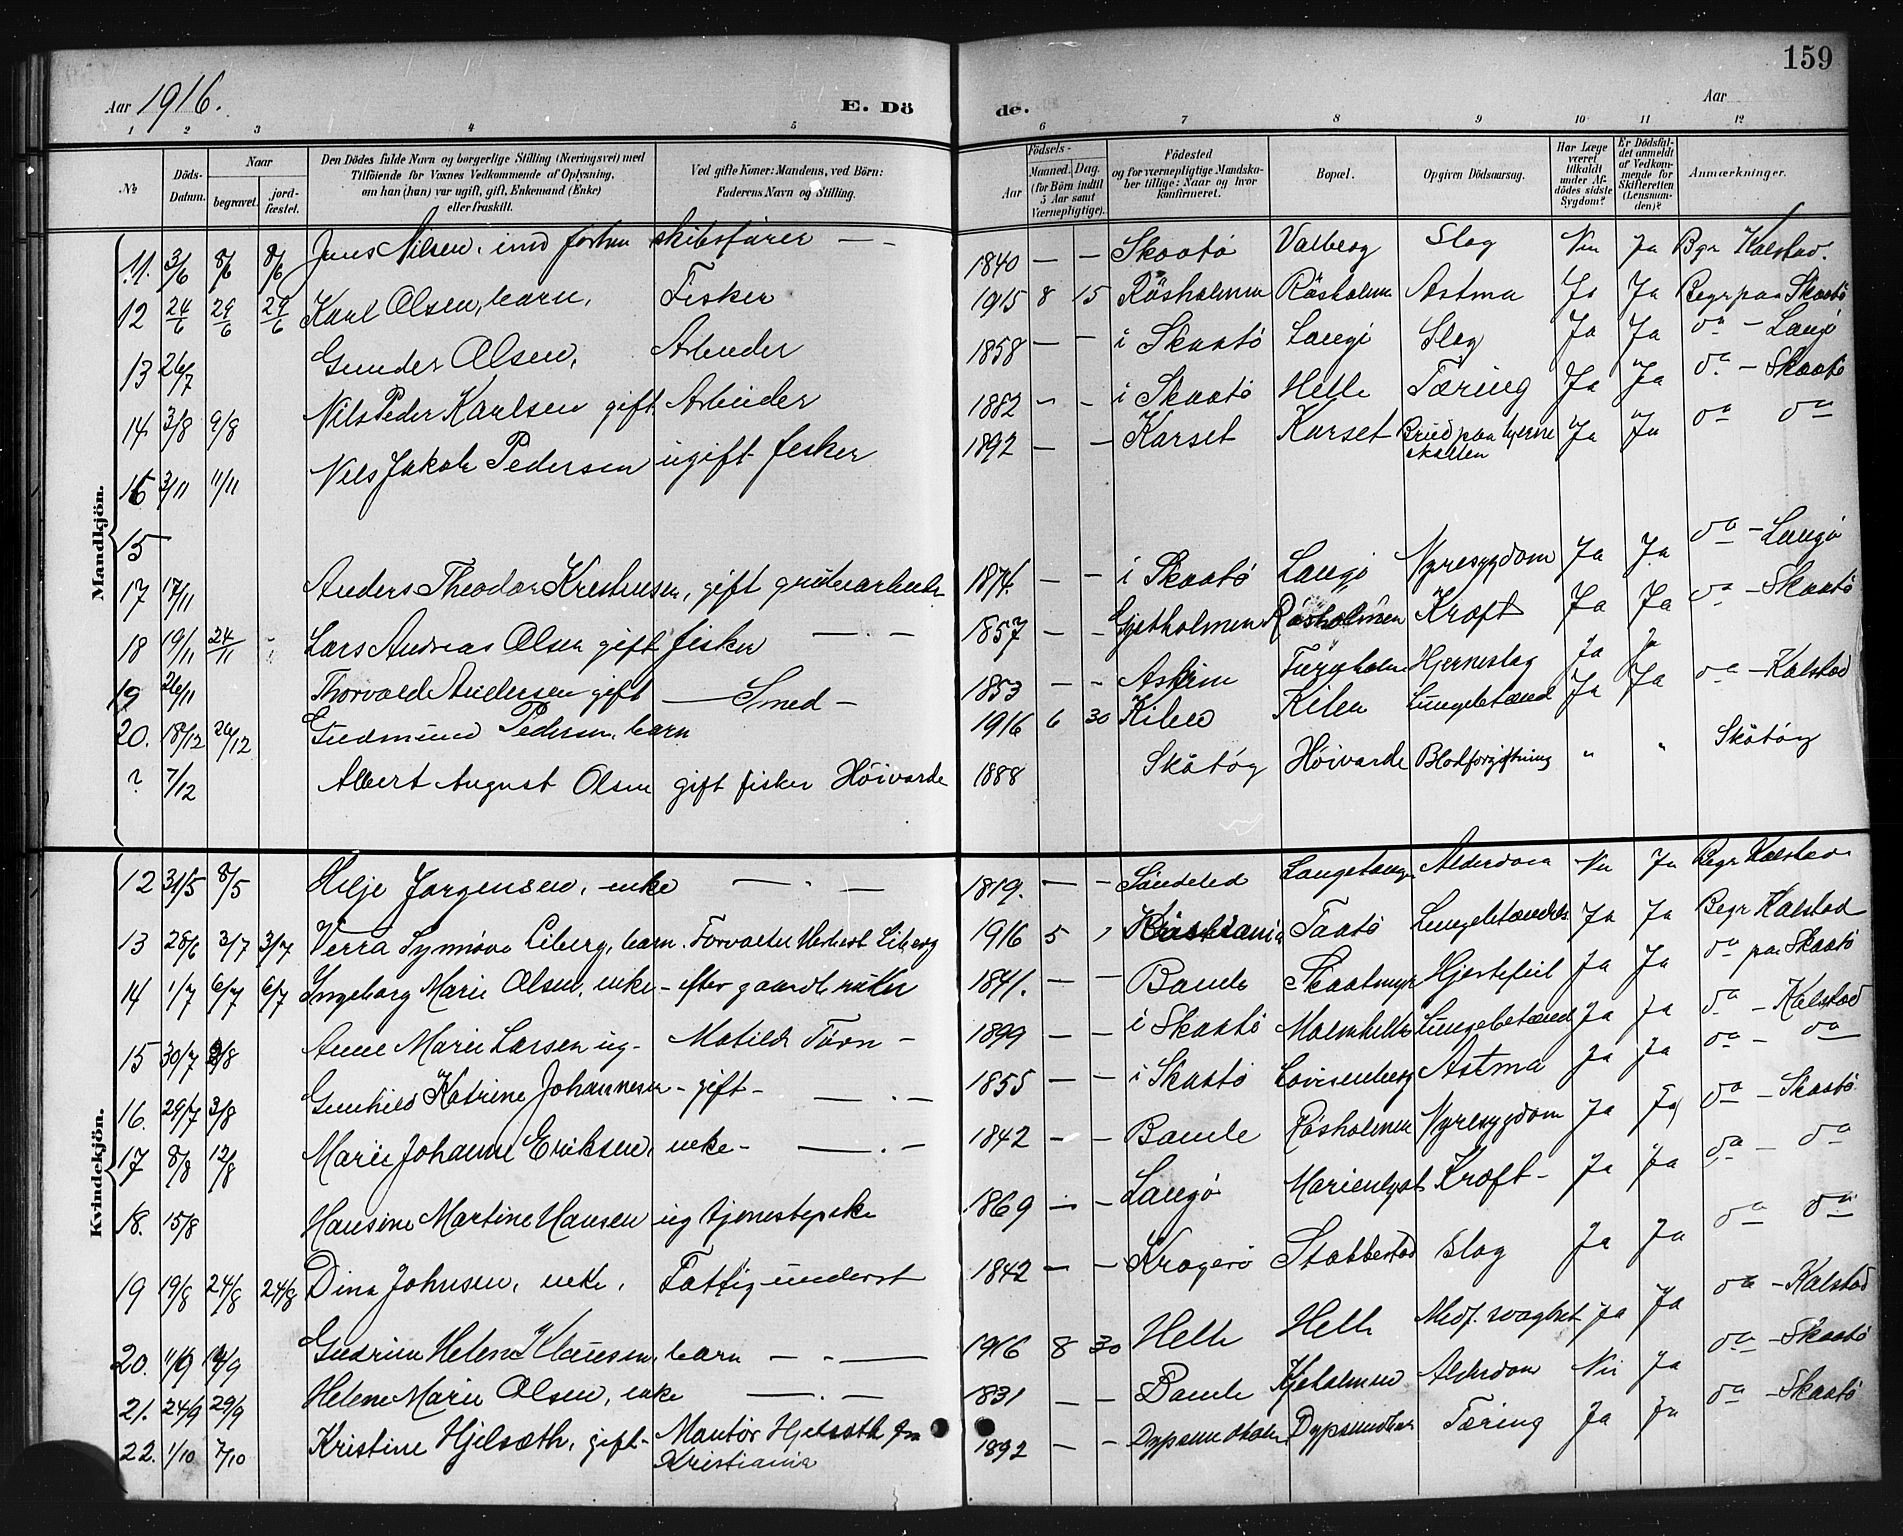 159
Aar 1916. E. Dö de. Aar
1 2 3 4 5 6 7 8 9 10 11 12
No Döds-Datum. Naar begravet. jordfæstet. Den Dödes fulde Navn og borgerlige Stilling (Næringsvei) med Tilföiende for Voxnes Vedkommende af Oplysning, om han (hun) var ugift, gift, Enkemand (Enke) eller fraskilt. Ved gifte Koner: Mandens, ved Börn: Faderens Navn og Stilling. Födsels- Aar Maaned. Dag. (for Börn indtil 5 Aar samt Værnepligtige). Födested og for værnepligtige Mandskaber tillige: Naar og hvor konfirmeret. Bopæl. Opgiven Dödsaarsag. Har Læge været tilkaldt under Afdödes sidste Sygdom? Er Dödsfaldet anmeldt af Vedkommende for Skifteretten (Lensmanden)? Anmærkninger.
Mandkjön.
11. 3/6 8/6 8/6 Jens Nilsen, ind forhen skibsfører — - 1840 — — Skaatö Valberg Slag Nei Ja Bgr Kalstad.
12 24/6 29/6 29/6 Karl Olsen, barn, Fisker 1915 8 15 Råsholmen Råsholmen Astma Ja Ja Begr paa Skaatö
13 26/7 Gunder Olsen, Arbeider 1858 - - i Skaatö Langö Slag Ja Ja do - Langö
14 3/8 9/8 Nils Peder Karlsen gift Arbeider 1882 - - i Skaatö Helle Tæring Ja Ja do - Skaatö
16 3/11 11/11 Nils Jakob Pedersen ugift fisker 1892 — - Karset Karset Brud paa hjerne skallen Ja Ja do do
15 —
17 17/11 Anders Theodor Kristensen, gift grubearbeider 1874. — - i Skaatö Langö Nyresygdom Ja Ja do - Langö
18 19/11 24/11 Lars Andreas Olsen gift fisker — . — 1857 — - Gjetholmen Råsholmen Kræft Ja Ja do - Skaatö
19 26/11 Thorvald Andersen gift — Smed — 1853 - - Askim Furuholm Hjerneslag Ja Ja
20. 18/12 26/12 Gudmund Pedersen, barn 1916 6 30 Kilen Kilen Lungebetænd Ja Ja do - Kalstad
? 7/12 Albert August Olsen gift fisker Höivarde 1888 Skåtöy Höivarde Blodforgiftning " " Skåtöy
Kvindekjön.
12 31/5 8/5 Helje Jørgensen, enke — . — 1819. — - Søndeled Langetangen Alderdom Nei Ja Begr Kalstad
13 28/6 3/7 3/7 Verra Synnöve Liberg, barn. Forvalter Herbert Liberg 1916 5 1 Kristiania Taatö Lungebetændelse Ja Ja Begr Kalstad
14 1/7 6/7 6/7 Ingeborg Marie Olsen, enke - efter gaardbruker 1841. — - Bamle Skaatmyr Hjertefeil Ja Ja do paa Skaatö
15 30/7 2/8 Anne Marie Larsen ug- Matilde Törn - 1899 — - i Skaatö Malmhella Lungebetænd Ja Ja do - Kalstad
16. 29/7 3/8 Gunhild Katrine Johannesen - gift - — . — 1855 — - i Skaatö Lovisenberg Astma Ja Ja do - do
17 8/8 12/8 Marie Johanne Eriksen, enke- — . — 1842 - - Bamle Råsholmen Nyresygdom Ja Ja do - Skaatö
18. 15/8 Hansine Martine Hansen ug tjenestepike 1869 — - Langö Marienlyst Kræft - Ja Ja do - do
19 19/8 24/8 24/8 Dina Johnsen, enke, Fattigunderst 1842 — - Kragerö Stabbestad Slag Ja Ja do do
20. 11/9 14/9 Gudrun Helene Klausen, barn — - — 1916 8 30 Helle Helle Medf. svaghet Ja Ja do - Kalstad
21. 24/9 29/9 Helene Marie Olsen, enke — . — 1831 — - Bamle Kjeholmen Alderdom Nei Ja do - Skaatö
22. 1/10 7/10 Kristine Hjelsæth, gift - Montör Hjelsæth fra Kristiania 1892 — - Dypsundholm Dypsundholm Tæring Ja Ja do - Skaatö